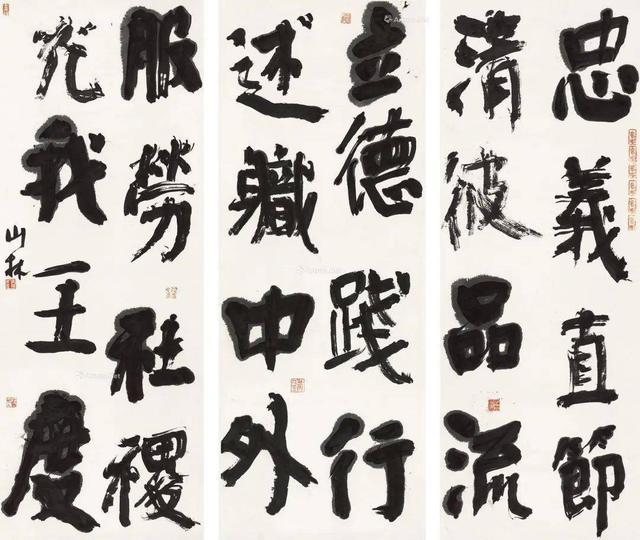 忠義直節
清彼品流
立德踐行
述職中外
服勞社稷
光我王度
山林